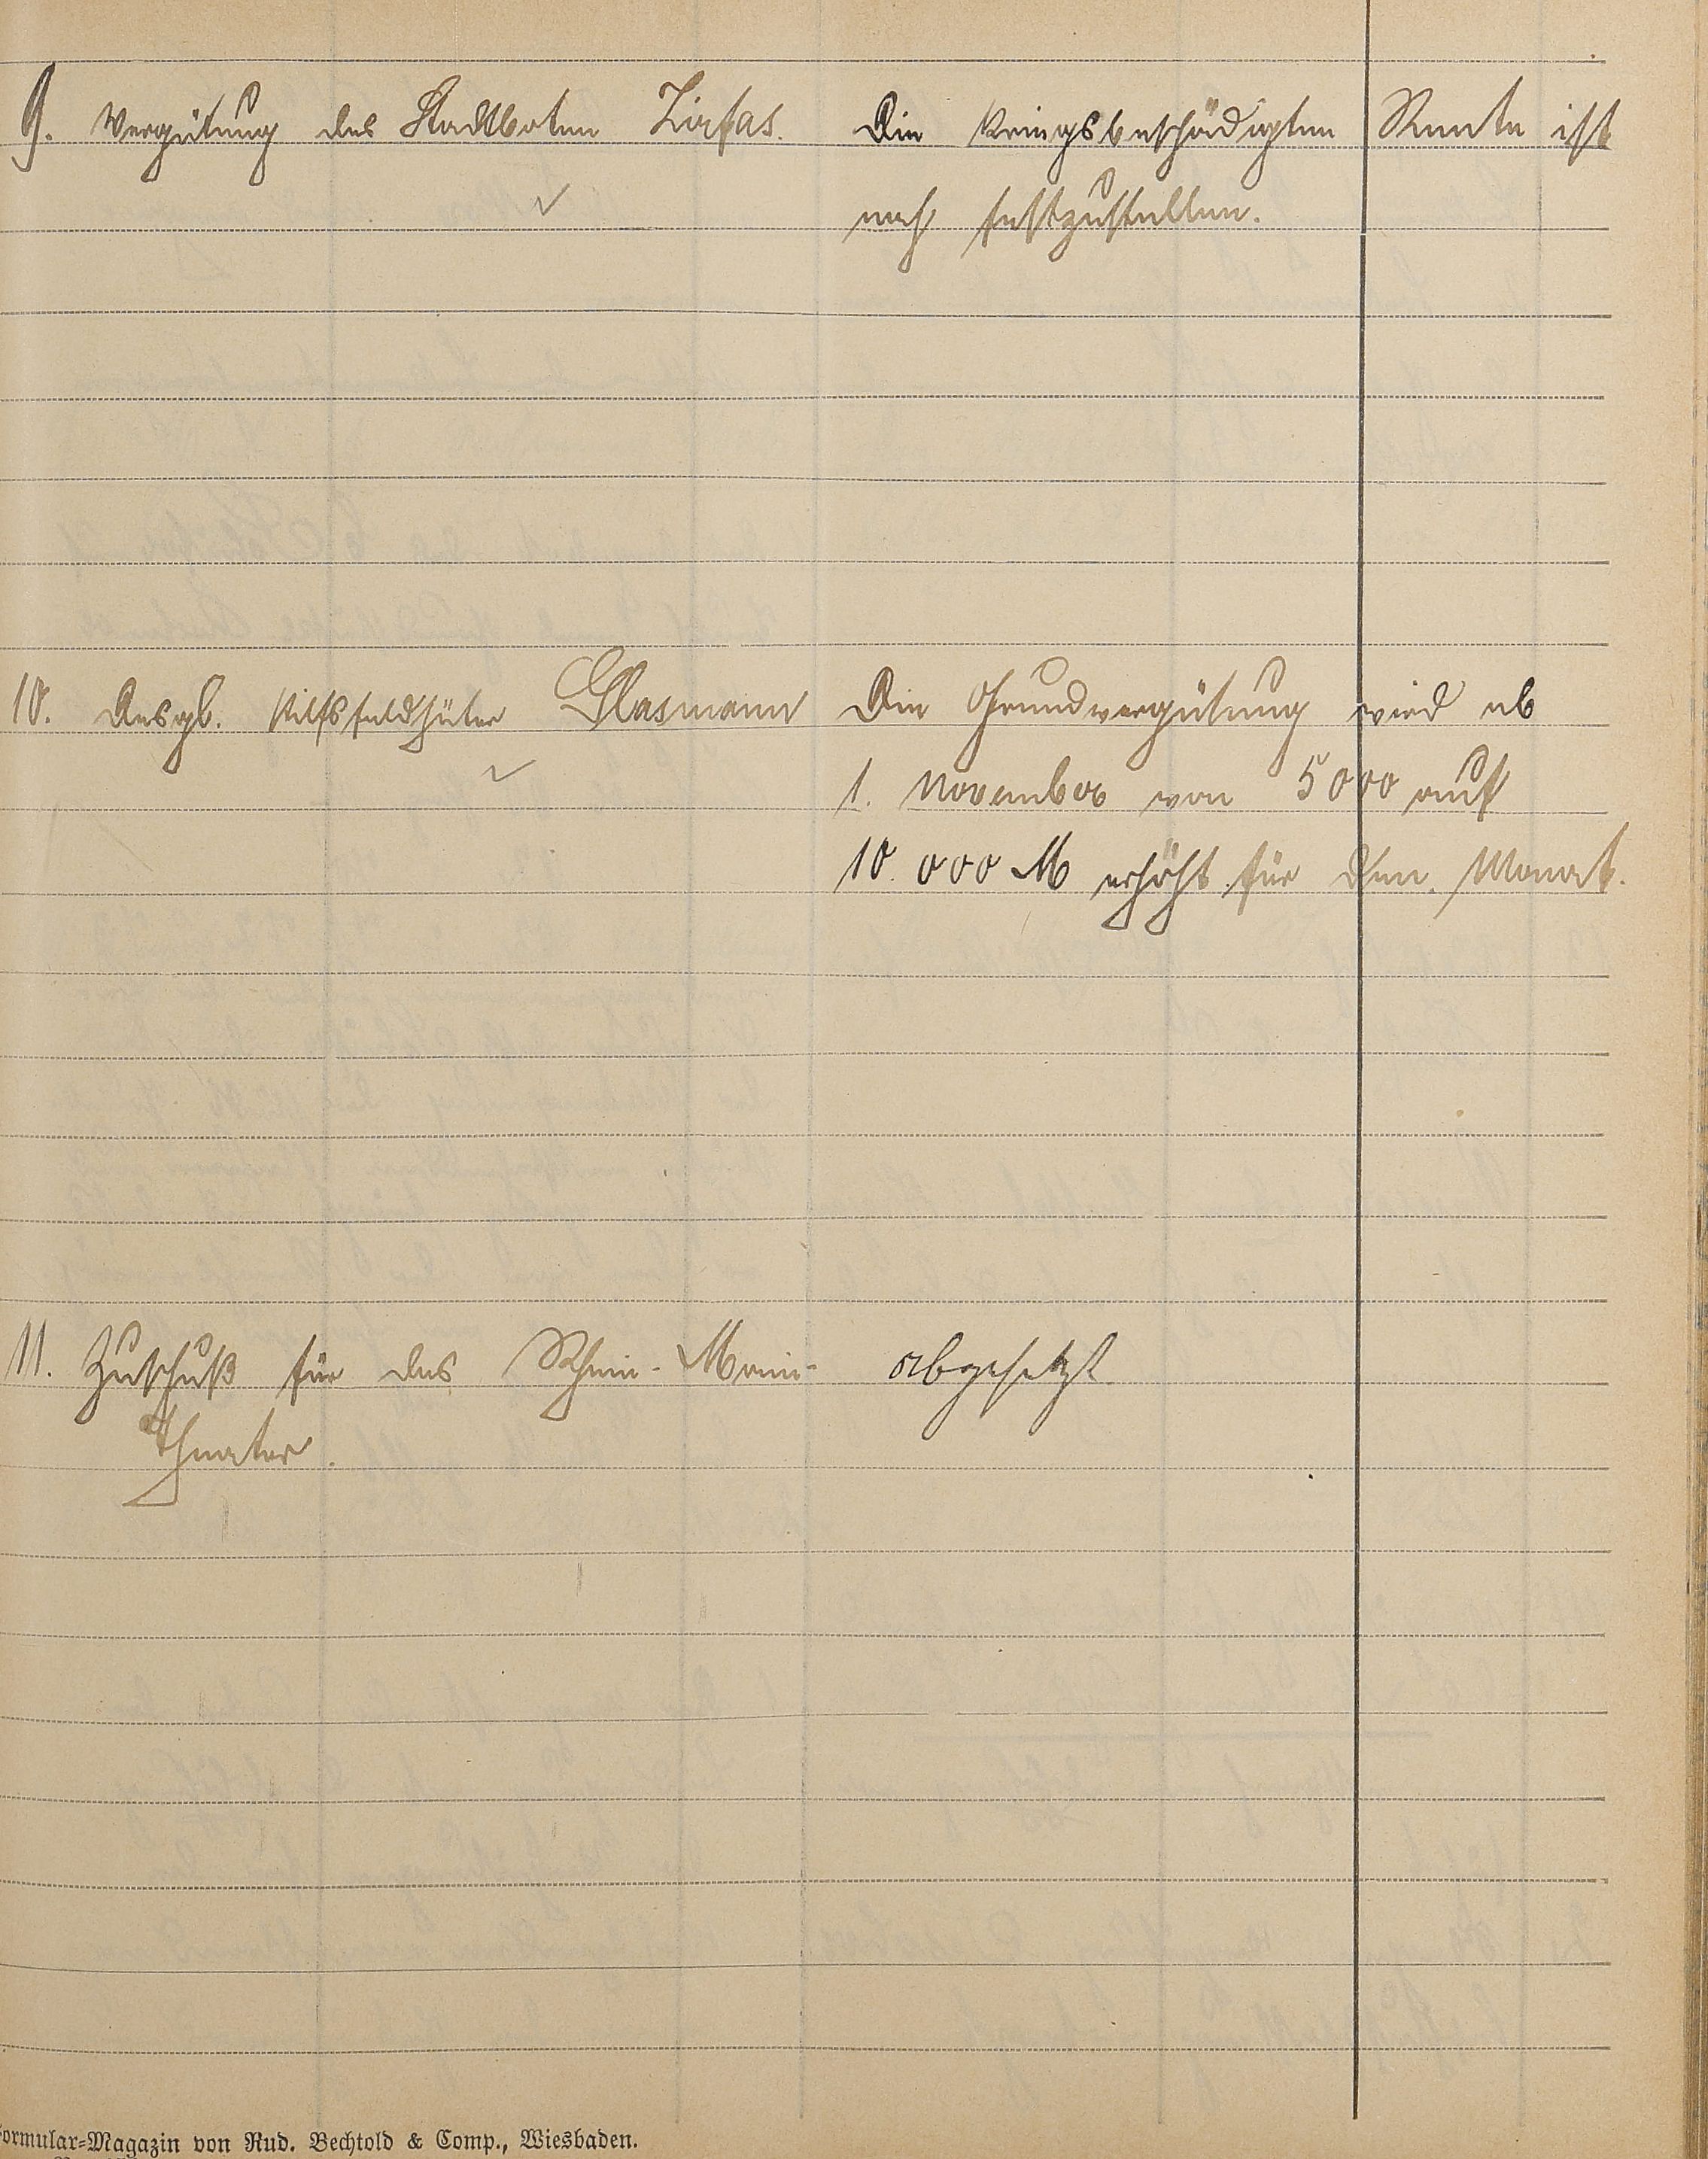 9. Vergütung des Stadtboten Zirfas.
Die Kriegsbeschädigten Rente ist
noch festzustellen.
10. Desgl. Hilfsfeldhüter Glasmann
Die Grundvergütung wird ab
1. November von 5000 auf
10.000 M erhöht für den Monat.
11. Zuschuß für das Rhein-Main-
Theater.
abgesetzt
Formular-Magazin von Rud. Bechtold & Comp., Wiesbaden.